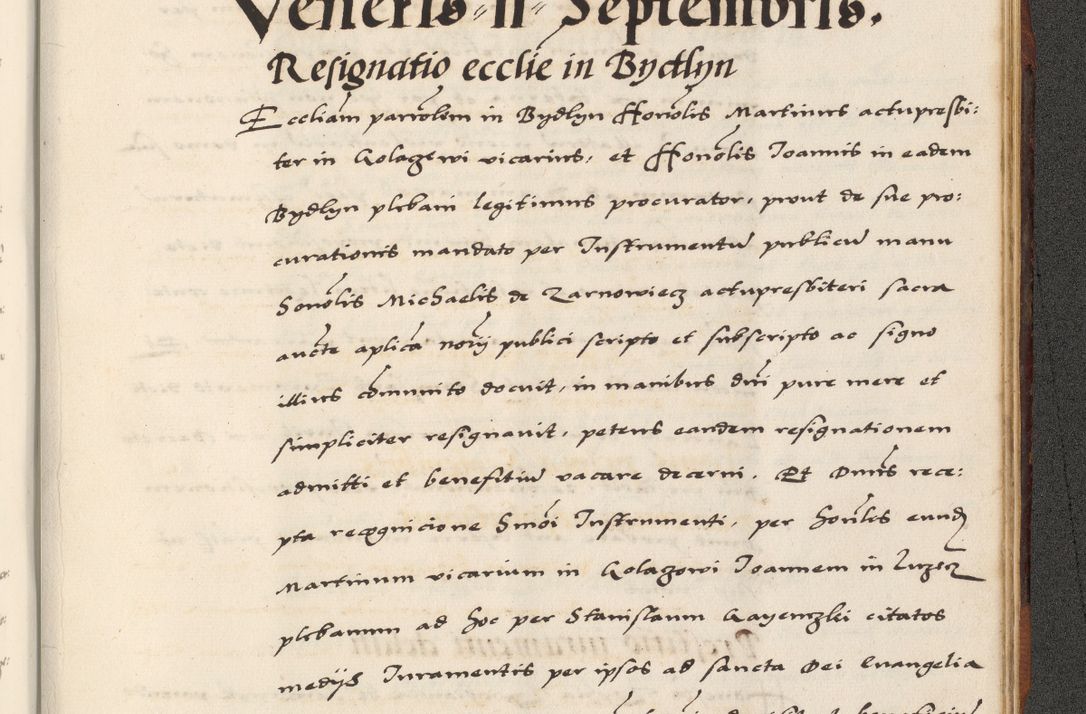 Veneris 11 Septembris.
Resignatio ecclie in Bydlyn
Eccliam parrolem in Bydlyn Honolis Martinus actupresbi:
ter in Golaczewi vicarius, et Honolis Joannis in eadem
Bydlyn plebani legitimus procurator, prout de sue pro:
curationis mandato per Instrumentu publicu manu
honolis Michaelis de Zarnowiecz actupresbiteri sacra
aucte aplica norij publici scripto et subscripto ac signo
illius comunito docuit, in manibus dni pure mere et
simpliciter resignavit, petens eandem resignationem
admitti et benefitiu vacare decerni. Et Dnus rece:
pta recognicione hmoi Instrumenti, per honlis eund
Martinum vicarium in Golaczowi Joannem in
plebanum ad hoc per Stanislaum citatos
medijs Iuramentis per ipsos ad sancta Dei Evangelia